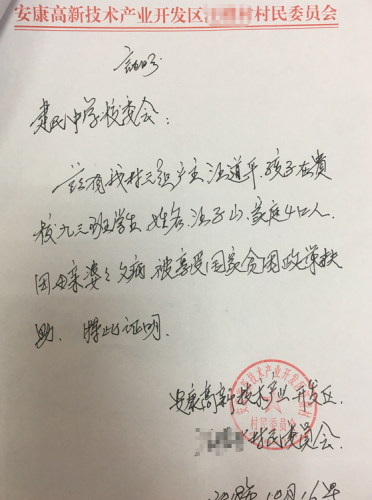 安康高新技术产业开发区 村民委员会
证明
建民中学校委会:
兹有我村三组户主汪道平,孩子在贵
校九三班学生 姓名 汪子山,家庭4口人.
因母亲 病,被享受国家贫困政策扶
助. 特此证明.
安康高新技术产业开发区
村民委员会
村民委员会